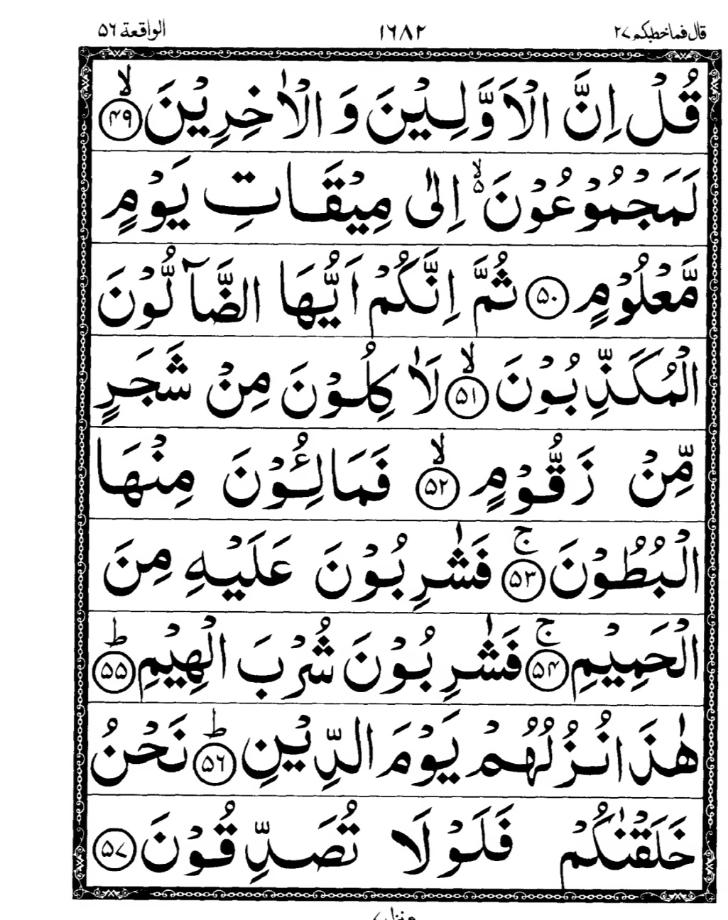 قال فما خطبكم ٢٧ ١٦٨٢ الواقعة ٥٦
قُلْ اِنَّ الْاَوَّلِيْنَ وَ الْاٰخِرِيْنَ ۙ﴿۴۹﴾
لَمَجْمُوْعُوْنَ ۙ۬ اِلٰى مِيْقَاتِ يَوْمٍ
مَّعْلُوْمٍ ﴿۵۰﴾ ثُمَّ اِنَّكُمْ اَيُّهَا الضَّآلُّوْنَ
الْمُكَذِّبُوْنَ ۙ﴿۵۱﴾ لَاٰكِلُوْنَ مِنْ شَجَرٍ
مِّنْ زَقُّوْمٍ ۙ﴿۵۲﴾ فَمَالِـُٔوْنَ مِنْهَا
الْبُطُوْنَ ۚ﴿۵۳﴾ فَشٰرِبُوْنَ عَلَيْهِ مِنَ
الْحَمِيْمِ ۚ﴿۵۴﴾ فَشٰرِبُوْنَ شُرْبَ الْهِيْمِ ؕ﴿۵۵﴾
هٰذَا نُزُلُهُمْ يَوْمَ الدِّيْنِ ؕ﴿۵۶﴾ نَحْنُ
خَلَقْنٰكُمْ فَلَوْ لَا تُصَدِّقُوْنَ ﴿۵۷﴾
منزل ٧